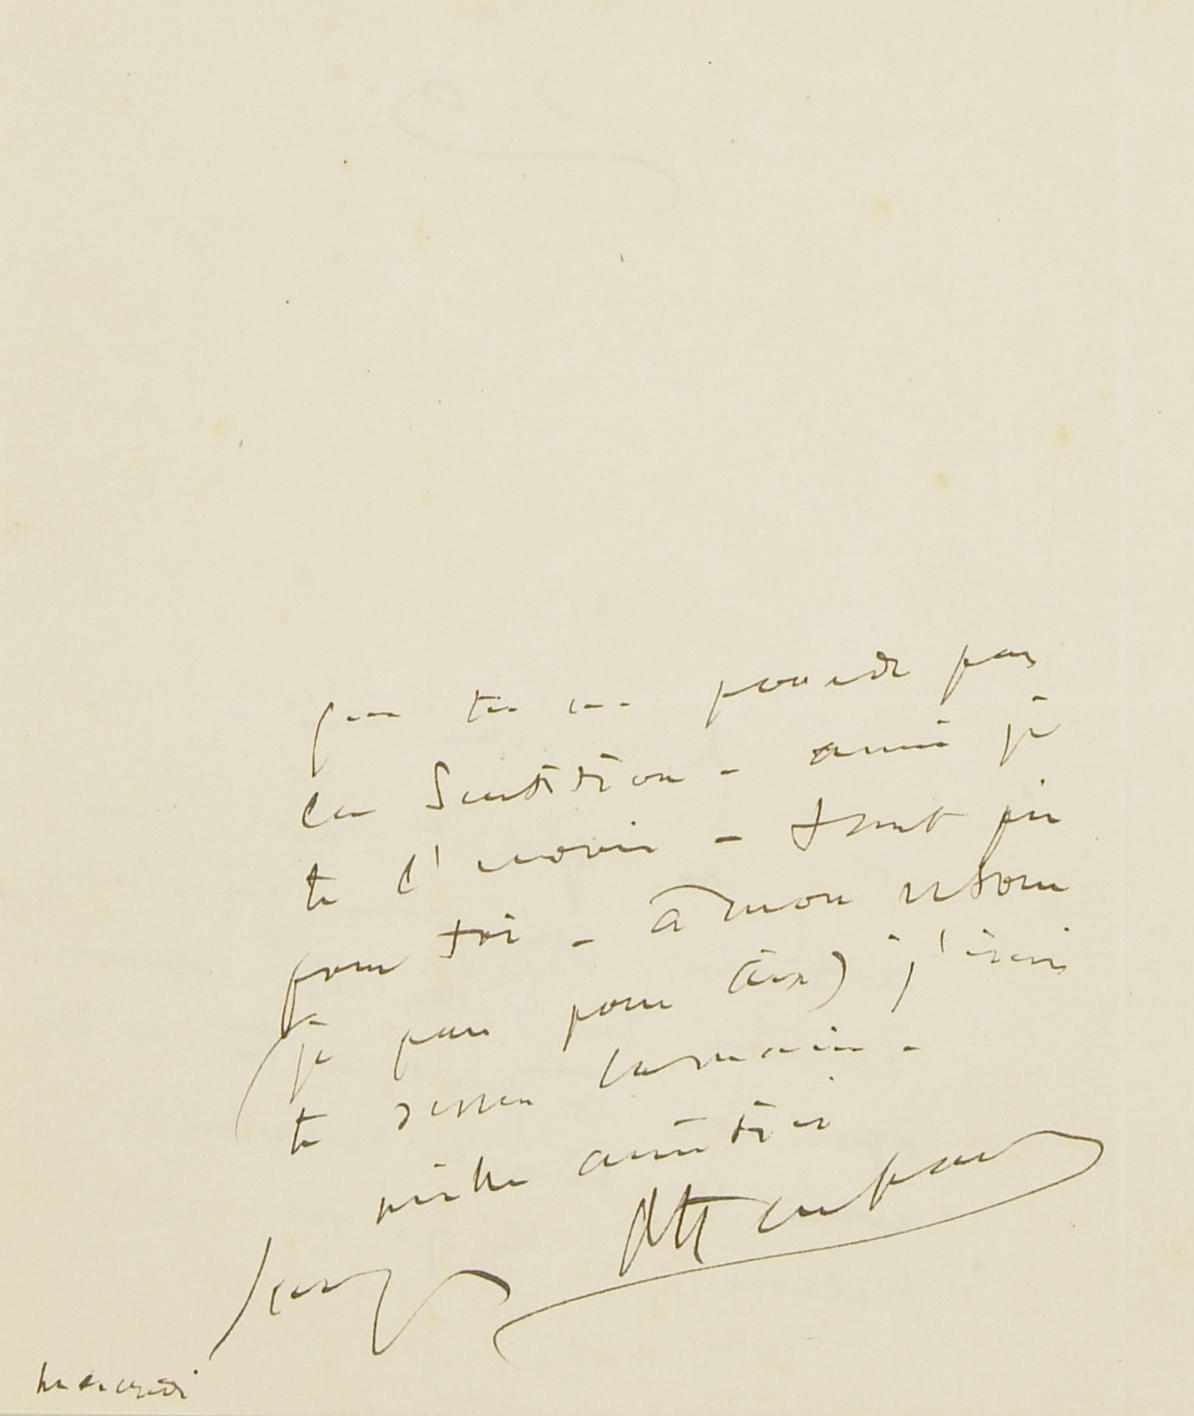 que tu ne possède pas
la - aussi je
te l'envoie - tant pis
pour toi - à mon retour
(je pars pour Aix) j'irai
te serrer la main -
mille amitiés
mercredi